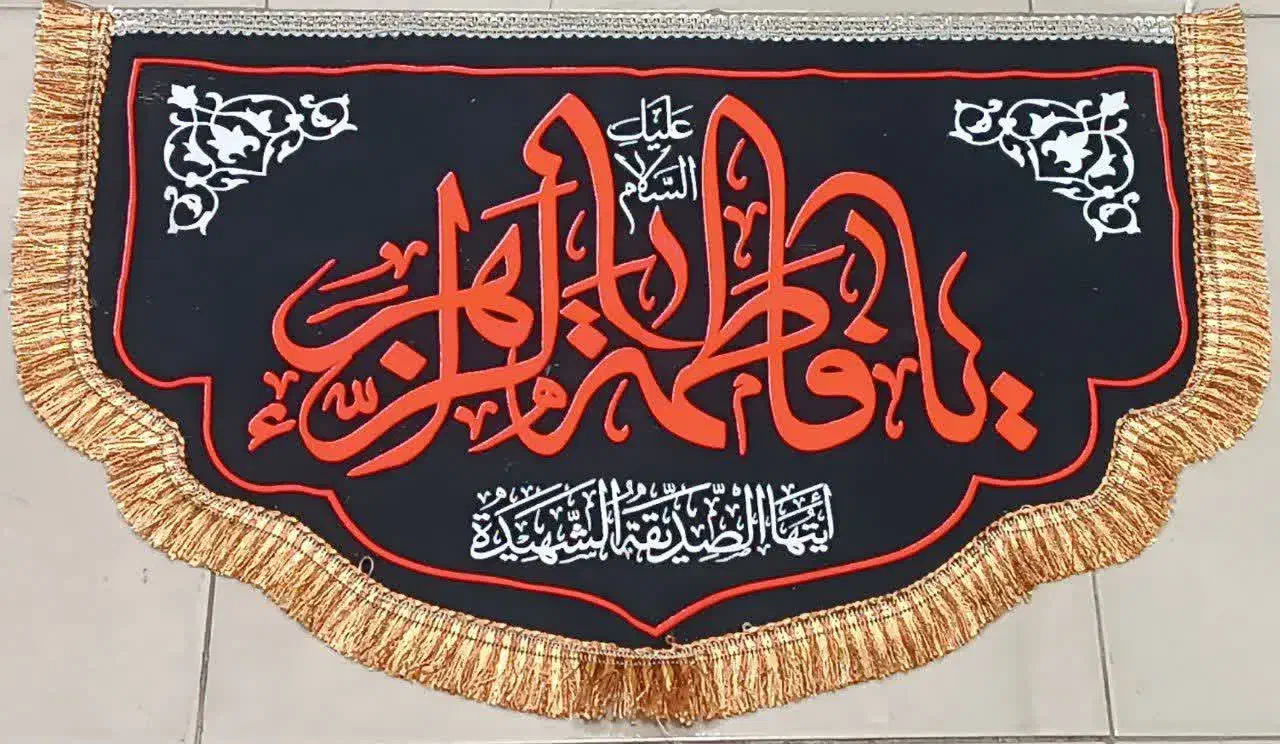 عَلَيْكِ
السَّلَام
يا فاطمة الزهراء
أَيَّتُهَا الصِّدِّيقَةُ الشَّهِيدَةُ